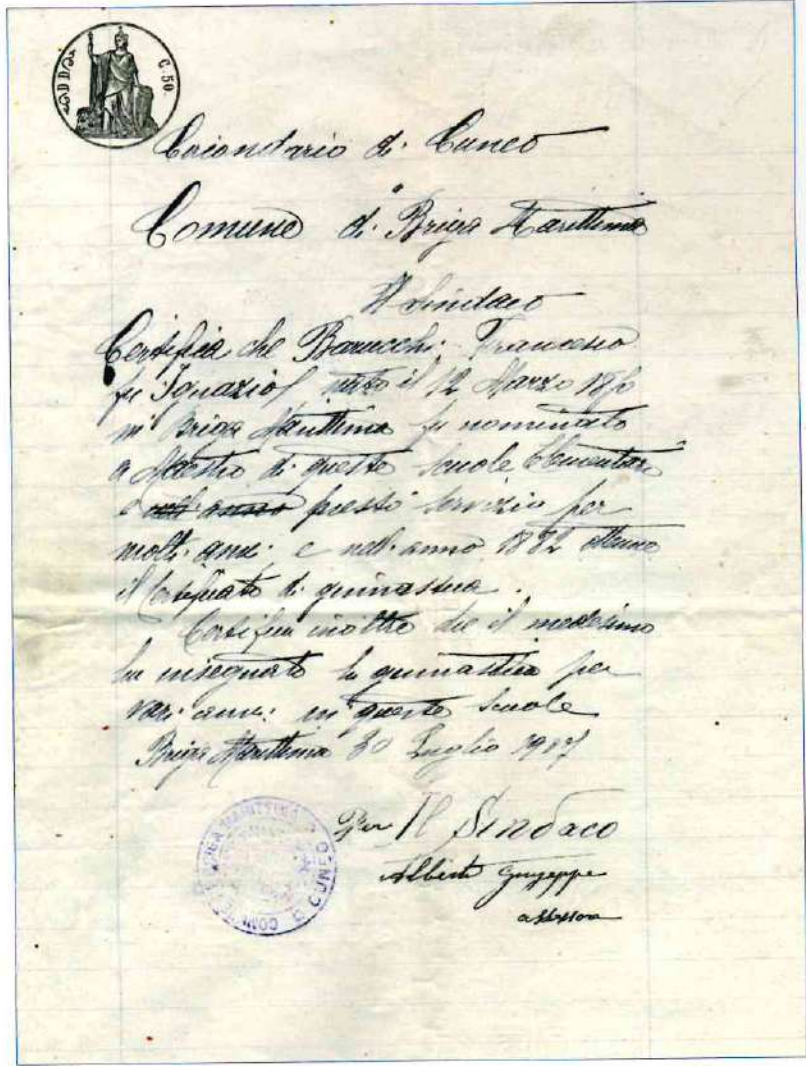 C. 50
Circondario di Cuneo
Comune di Briga Marittima
Il Sindaco
Certifica che Barucchi Francesco
fu Ignazio nato il 12 Marzo 18
in Briga Marittima fu nominato
a Maestro di queste scuole Elementari
e nell'anno prestò servizio per
molti anni e nell'anno 1882 ottenne
il Certificato di ginnastica.
Certifica inoltre che il medesimo
ha insegnato la ginnastica per
vari anni in queste scuole
Briga Marittima 30 Luglio 1917
Per Il Sindaco
Alberti Giuseppe
assessore
BRIGA MARITTIMA
CUNEO